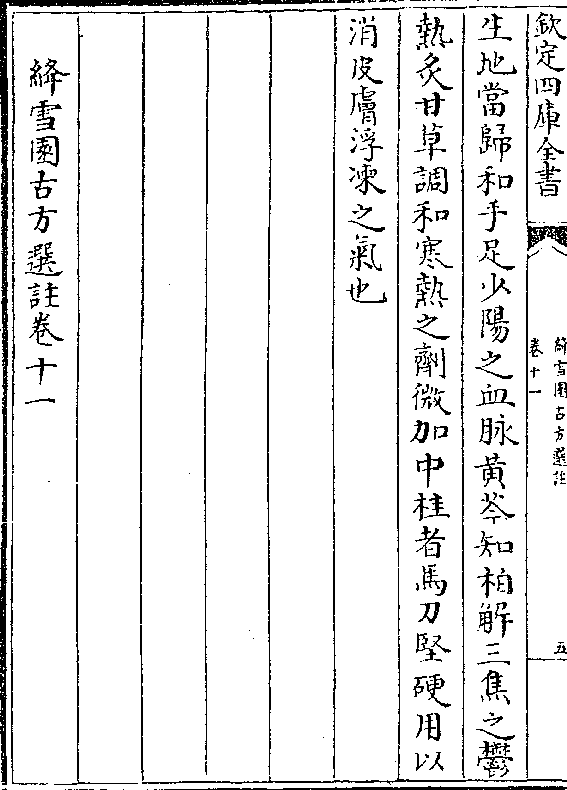 欽定四庫全書
絳雪園古方選註
卷十一
五
生地當歸和手足少陽之血脉黄芩知柏解三焦之鬱
熱炙甘草調和寒熱之劑微加中桂者馬刀堅硬用以
消皮膚浮凍之氣也
絳雪園古方選註卷十一